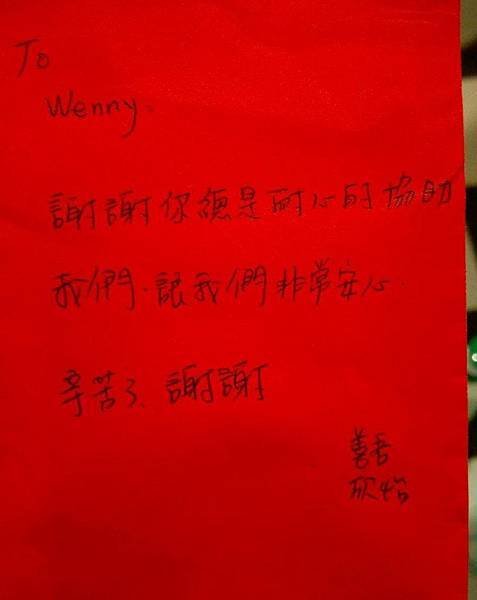 To
Wenny.
謝謝你總是耐心的協助
我們、讓我們非常安心.
辛苦了、謝謝
善吾
欣怡